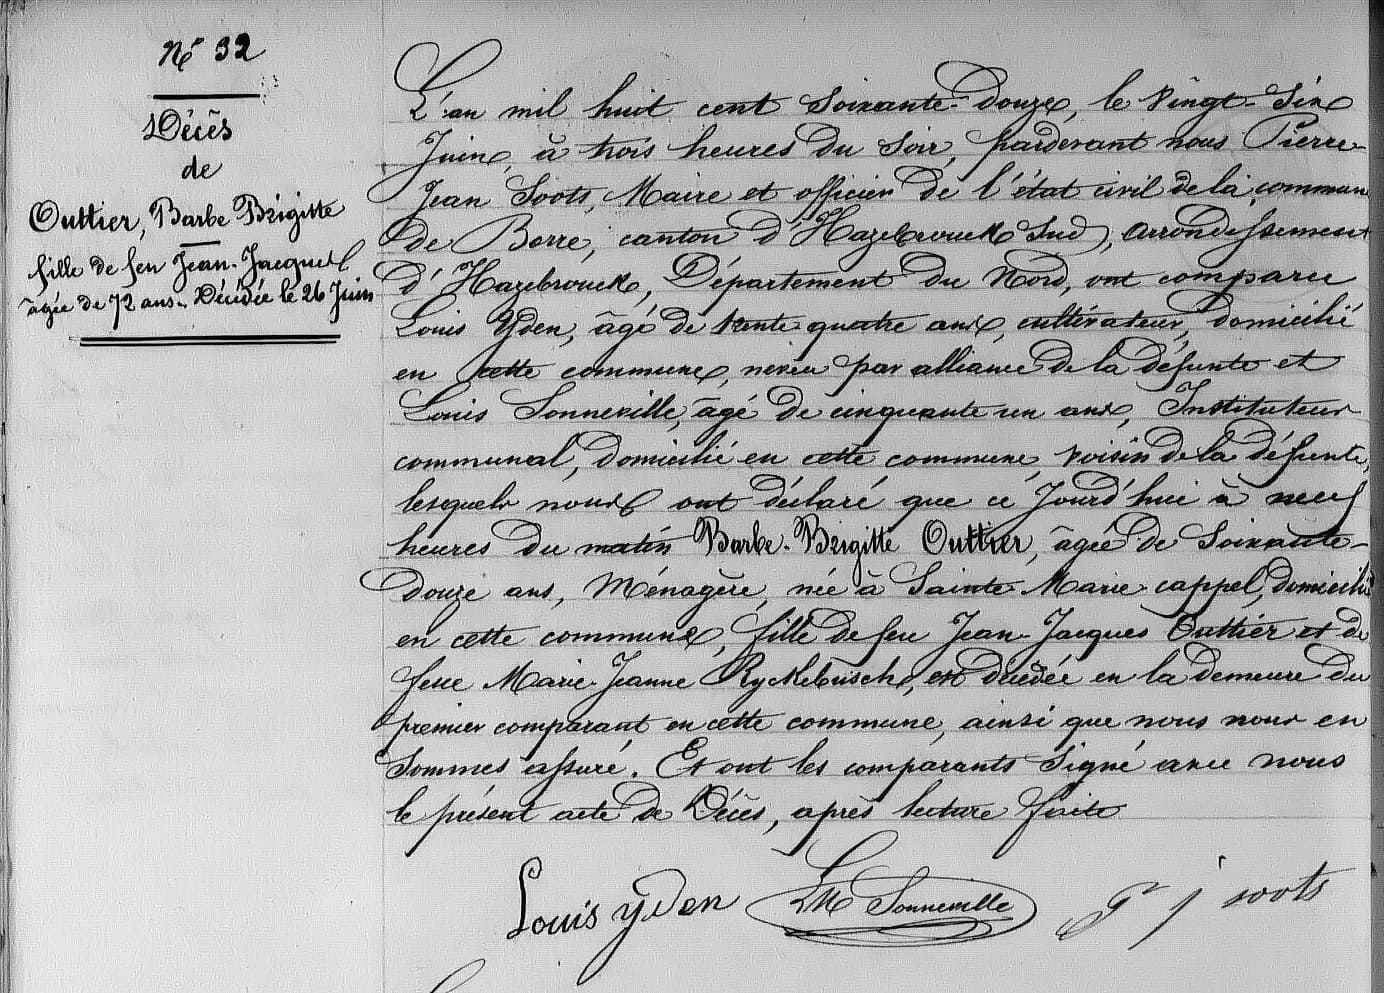 N° 32
Décès
de
Outtier, Barbe Brigitte
fille de feu Jean-Jacques
âgée de 72 ans. Décédée le 26 Juin
L'an mil huit cent soixante-douze, le vingt-six
Juin, à trois heures du soir, pardevant nous Pierre-
Jean Soots, Maire et officier de l'état civil de la commune
de Borre, canton d'Hazebrouck Sud, arrondissement
d'Hazebrouck, Département du Nord, ont comparu
Louis Yden, âgé de trente quatre ans, cultivateur, domicilié
en cette commune, neveu par alliance de la défunte et
Louis Sonneville, âgé de cinquante un ans, Instituteur
communal, domicilié en cette commune, voisin de la défunte,
lesquels nous ont déclaré que ce jourd'hui à neuf
heures du matin Barbe-Brigitte Outtier, âgée de soixante-
douze ans, Ménagère, née à Sainte-Marie-cappel, domiciliée
en cette commune, fille de feu Jean-Jacques Outtier et de
feue Marie-Jeanne Ryckebusch, est décédée en la demeure du
premier comparant en cette commune, ainsi que nous nous en
sommes assuré. Et ont les comparants signé avec nous
le présent acte de Décès, après lecture faite
Louis yden LM Sonneville Pr j soots